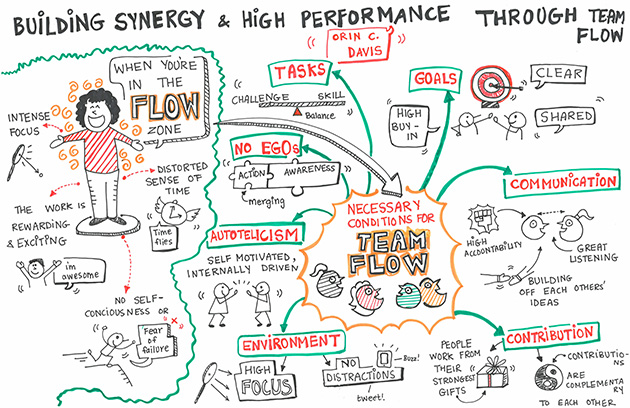 BUILDING SYNERGY & HIGH PERFORMANCE THROUGH TEAM
FLOW
ORIN C.
DAVIS
WHEN YOU'RE
IN THE
FLOW
ZONE
INTENSE
FOCUS
DISTORTED
SENSE OF
TIME
Time
flies
THE WORK IS
REWARDING
& EXCITING
im
awesome
NO SELF-
CONCIOUSNESS OR
Fear of
failure
NECESSARY
CONDITIONS FOR
TEAM
FLOW
TASKS
CHALLENGE SKILL
Balance
GOALS
CLEAR
SHARED
HIGH
BUY-
IN
NO EGOs
ACTION AWARENESS
merging
AUTOTELICISM
SELF MOTIVATED,
INTERNALLY DRIVEN
COMMUNICATION
HIGH
ACCOUNTABILITY
GREAT
LISTENING
BUILDING
OFF EACH OTHERS'
IDEAS
ENVIRONMENT
HIGH
FOCUS
NO
DISTRACTIONS
Buzz!
tweet!
CONTRIBUTION
PEOPLE
WORK FROM
THEIR
STRONGEST
GIFTS
CONTRIBUTIO-
NS
ARE
COMPLEMENTA
RY
TO EACH OTHER